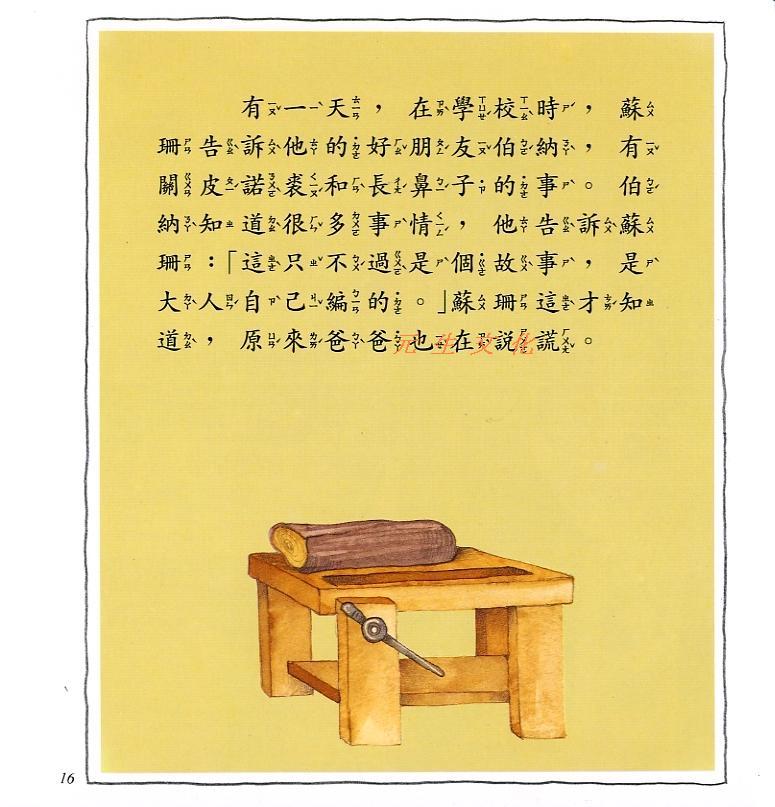 有一天，在學校時，蘇
珊告訴他的好朋友伯納，有
關皮諾裘和長鼻子的事。伯
納知道很多事情，他告訴蘇
珊：「這只不過是個故事，是
大人自己編的。」蘇珊這才知
道，原來爸爸也在說謊。
元生文化
16